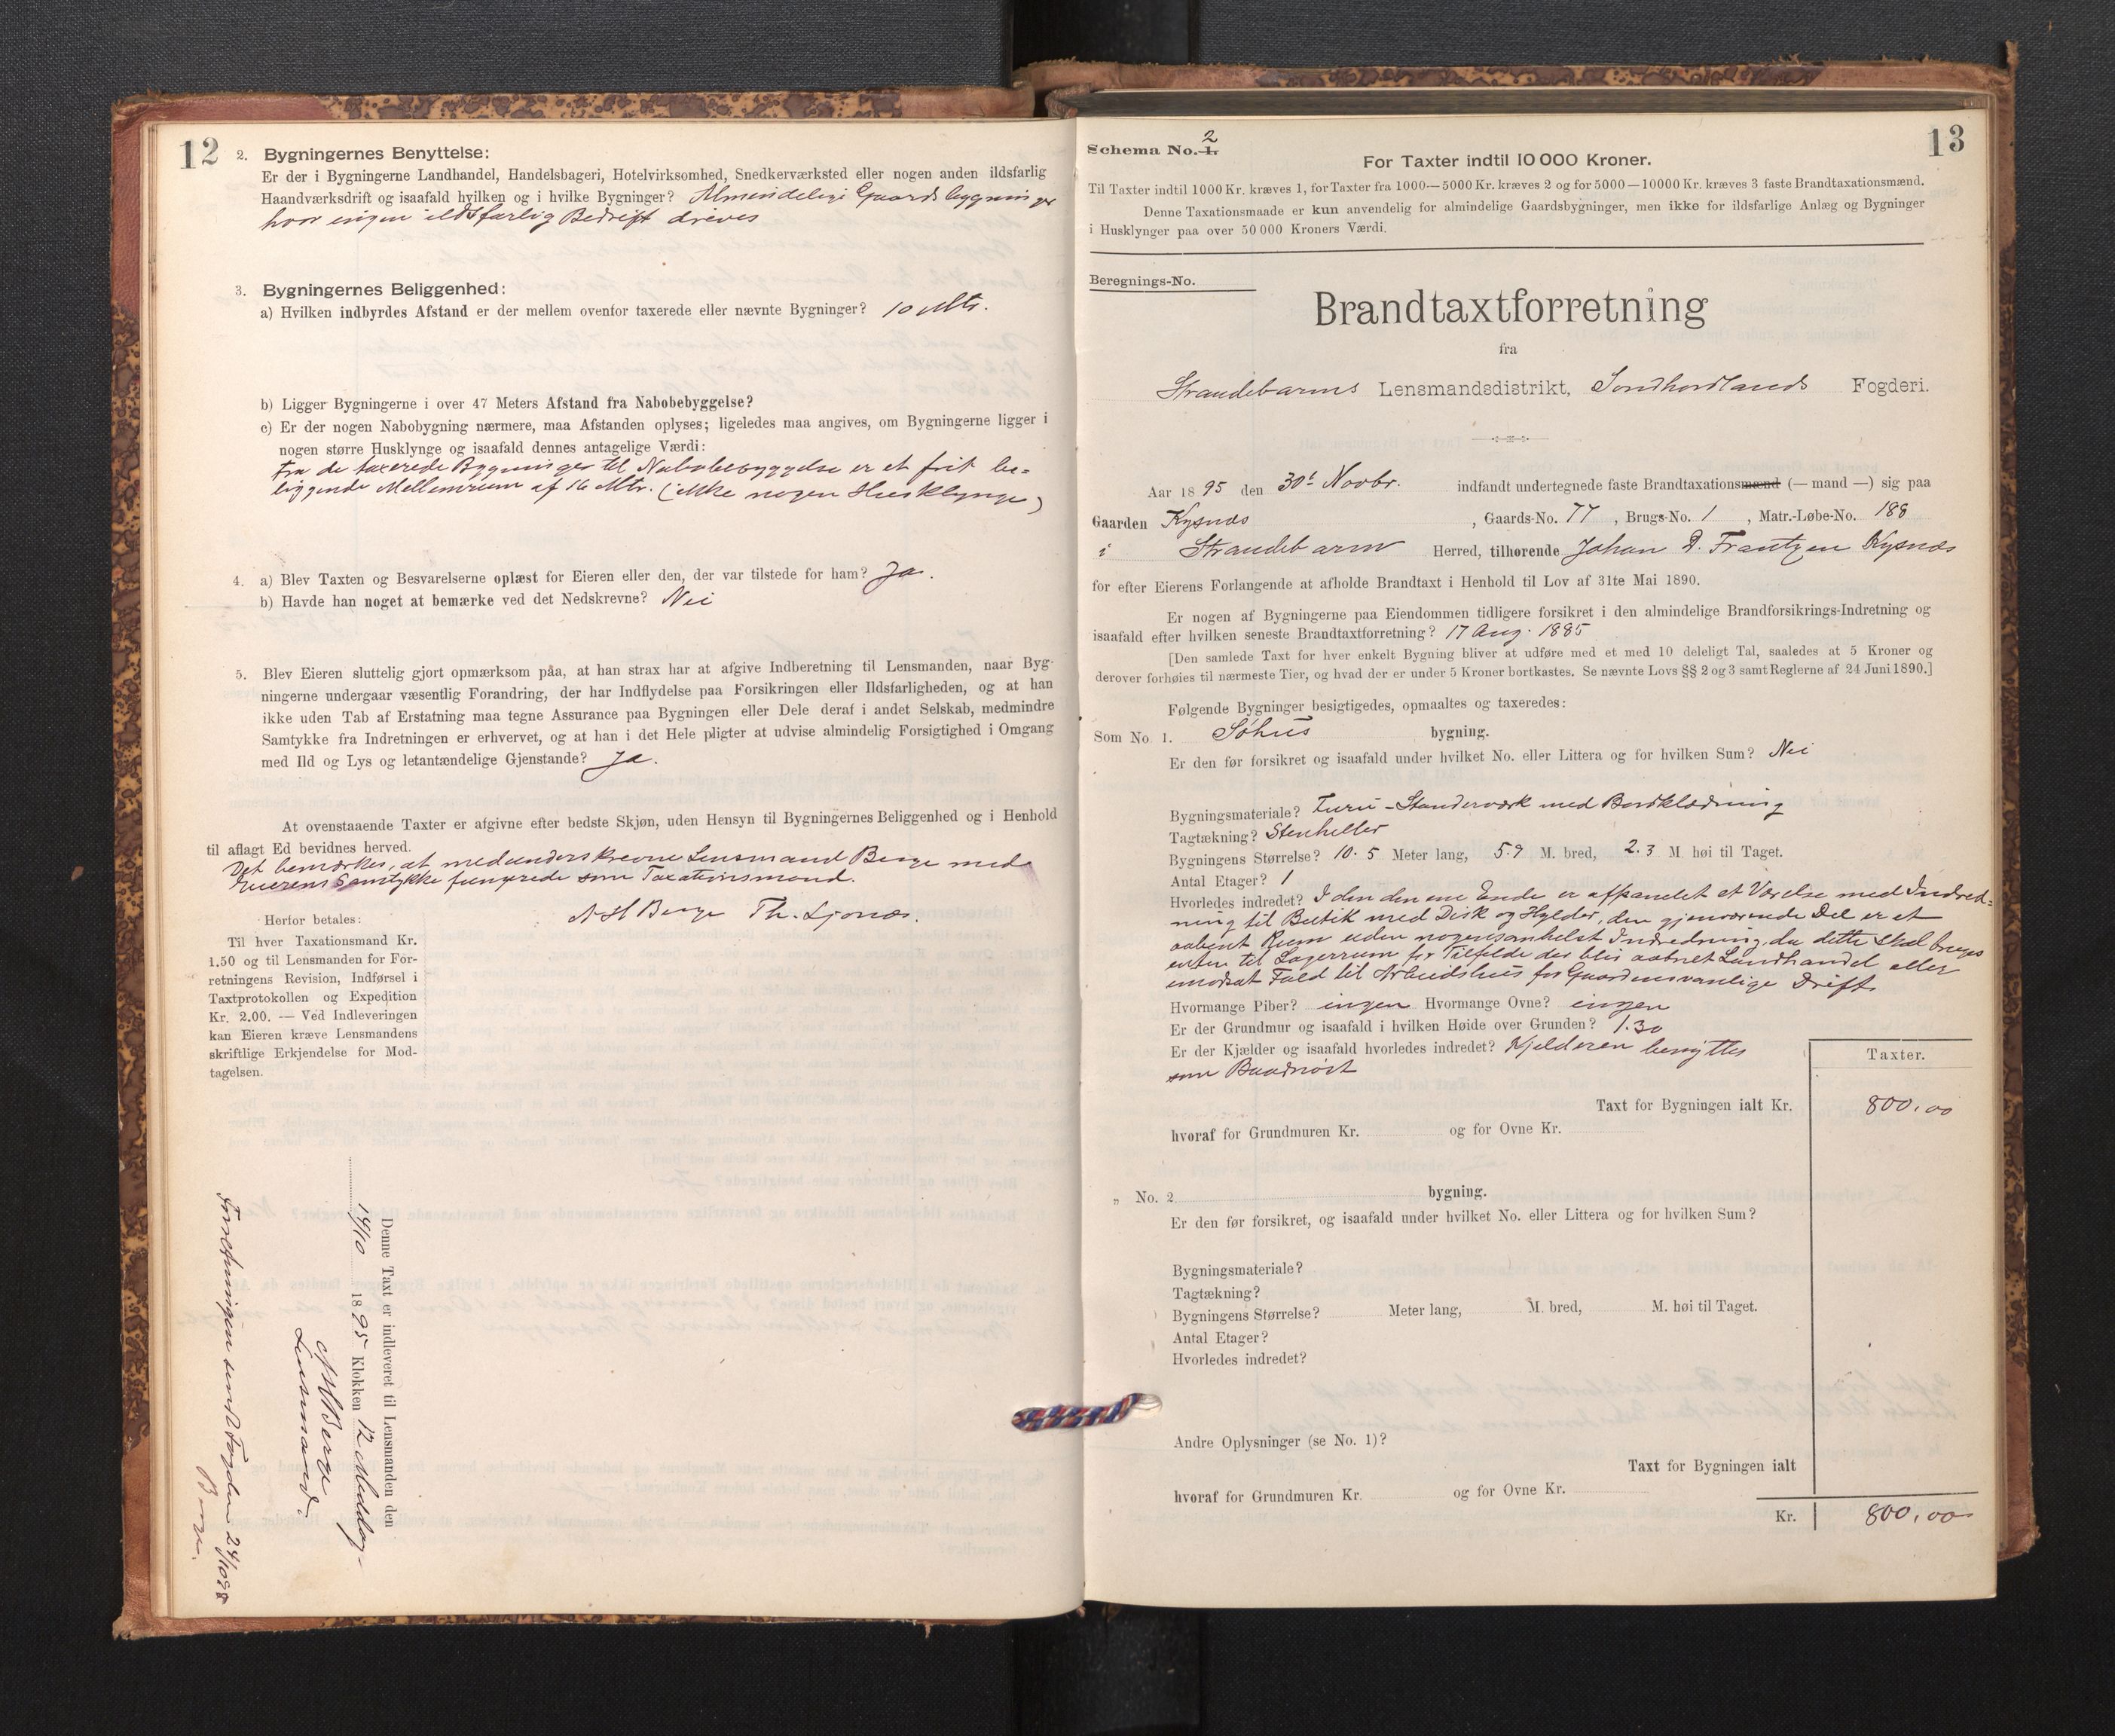 12
2. Bygningernes Benyttelse:
Er der i Bygningerne Landhandel, Handelsbageri, Hotelvirksomhed, Snedkerværksted eller nogen anden ildsfarlig
Haandværksdrift og isaafald hvilken og i hvilke Bygninger? Almindelige Gaardsbygninger
hvor ingen ildsfarlig Bedrift drives
3. Bygningernes Beliggenhed:
a) Hvilken indbyrdes Afstand er der mellem ovenfor taxerede eller nævnte Bygninger? 10 Mtr.
b) Ligger Bygningerne i over 47 Meters Afstand fra Nabobebyggelse?
c) Er der nogen Nabobygning nærmere, maa Afstanden oplyses; ligeledes maa angives, om Bygningerne ligger i
nogen større Husklynge og isaafald dennes antagelige Værdi:
Fra de taxerede Bygninger til Nabobebyggelse er et frit be=
liggende Mellemrum af 16 Mtr. (ikke nogen Husklynge)
4. a) Blev Taxten og Besvarelserne oplæst for Eieren eller den, der var tilstede for ham? Ja.
b) Havde han noget at bemærke ved det Nedskrevne? Nei
5. Blev Eieren sluttelig gjort opmærksom påa, at han strax har at afgive Indberetning til Lensmanden, naar Byg-
ningerne undergaar væsentlig Forandring, der har Indflydelse paa Forsikringen eller Ildsfarligheden, og at han
ikke uden Tab af Erstatning maa tegne Assurance paa Bygningen eller Dele deraf i andet Selskab, medmindre
Samtykke fra Indretningen er erhvervet, og at han i det Hele pligter at udvise almindelig Forsigtighed i Omgang
med Ild og Lys og letantændelige Gjenstande? Ja.
At ovenstaaende Taxter er afgivne efter bedste Skjøn, uden Hensyn til Bygningernes Beliggenhed og i Henhold
til aflagt Ed bevidnes herved.
Det bemærkes, at medunderskrevne Lensmand Berge med
Eierens Samtykke fungerede som Taxationsmand.
N H Berge Th. Ljonæs.
Herfor betales:
Til hver Taxationsmand Kr.
1.50 og til Lensmanden for For-
retningens Revision, Indførsel i
Taxtprotokollen og Expedition
Kr. 2.00. — Ved Indleveringen
kan Eieren kræve Lensmandens
skriftlige Erkjendelse for Mod-
tagelsen.
Denne Taxt er indleveret til Lensmanden den
14/10 1895 Klokken 12 Middag
N H Berge
Lensmand.
Forretningen sendt Fogden 24/10 95
Berge.
13
Schema No. 1. 2
For Taxter indtil 10 000 Kroner.
Til Taxter indtil 1000 Kr. kræves 1, for Taxter fra 1000—5000 Kr. kræves 2 og for 5000—10000 Kr. kræves 3 faste Brandtaxationsmænd.
Denne Taxationsmaade er kun anvendelig for almindelige Gaardsbygninger, men ikke for ildsfarlige Anlæg og Bygninger
i Husklynger paa over 50 000 Kroners Værdi.
Beregnings-No.
Brandtaxtforretning
fra
Strandebarms Lensmandsdistrikt, Søndhordlands Fogderi.
Aar 1895 den 30t Novbr. indfandt undertegnede faste Brandtaxationsmænd (— mand —) sig paa
Gaarden Kysnæs, Gaards-No. 77, Brugs-No. 1, Matr.-Løbe-No. 188
i Strandebarm Herred, tilhørende Johan D. Frantzen Kysnæs
for efter Eierens Forlangende at afholde Brandtaxt i Henhold til Lov af 31te Mai 1890.
Er nogen af Bygningerne paa Eiendommen tidligere forsikret i den almindelige Brandforsikrings-Indretning og
isaafald efter hvilken seneste Brandtaxtforretning? 17 Aug. 1885
[Den samlede Taxt for hver enkelt Bygning bliver at udføre med et med 10 deleligt Tal, saaledes at 5 Kroner og
derover forhøies til nærmeste Tier, og hvad der er under 5 Kroner bortkastes. Se nævnte Lovs §§ 2 og 3 samt Reglerne af 24 Juni 1890.]
Følgende Bygninger besigtigedes, opmaaltes og taxeredes:
Som No. 1. Søhus bygning.
Er den før forsikret og isaafald under hvilket No. eller Littera og for hvilken Sum? Nei
Bygningsmateriale? Furu-Standerværk med Bordklædning
Tagtækning? Stenheller
Bygningens Størrelse? 10.5 Meter lang, 5.9 M. bred, 2.3 M. høi til Taget.
Antal Etager? 1
Hvorledes indredet? I den den ene Ende er afpanelet et Værelse med Indred=
ning til Butik med Disk og Hylder, den gjenværende Del er et
aabent Rum uden nogensomhelst Indredning, da dette skal bruges
enten til Lagerrum for Tilfælde der blir aabnet Landhandel eller
imodsat Fald til Arbeidshus for Gaardens vanlige Drift.
Hvormange Piber? ingen Hvormange Ovne? ingen
Er der Grundmur og isaafald i hvilken Høide over Grunden? 1.30
Er der Kjælder og isaafald hvorledes indredet? Kjelderen benyttes
som Baadnøst
Taxter.
Taxt for Bygningen ialt Kr. 800.00
hvoraf for Grundmuren Kr. og for Ovne Kr.
„ No. 2 bygning.
Er den før forsikret, og isaafald under hvilket No. eller Littera og for hvilken Sum?
Bygningsmateriale?
Tagtækning?
Bygningens Størrelse? Meter lang, M. bred, M. høi til Taget.
Antal Etager?
Hvorledes indredet?
Andre Oplysninger (se No. 1)?
Taxt for Bygningen ialt
hvoraf for Grundmuren Kr. og for Ovne Kr.
Kr. 800.00